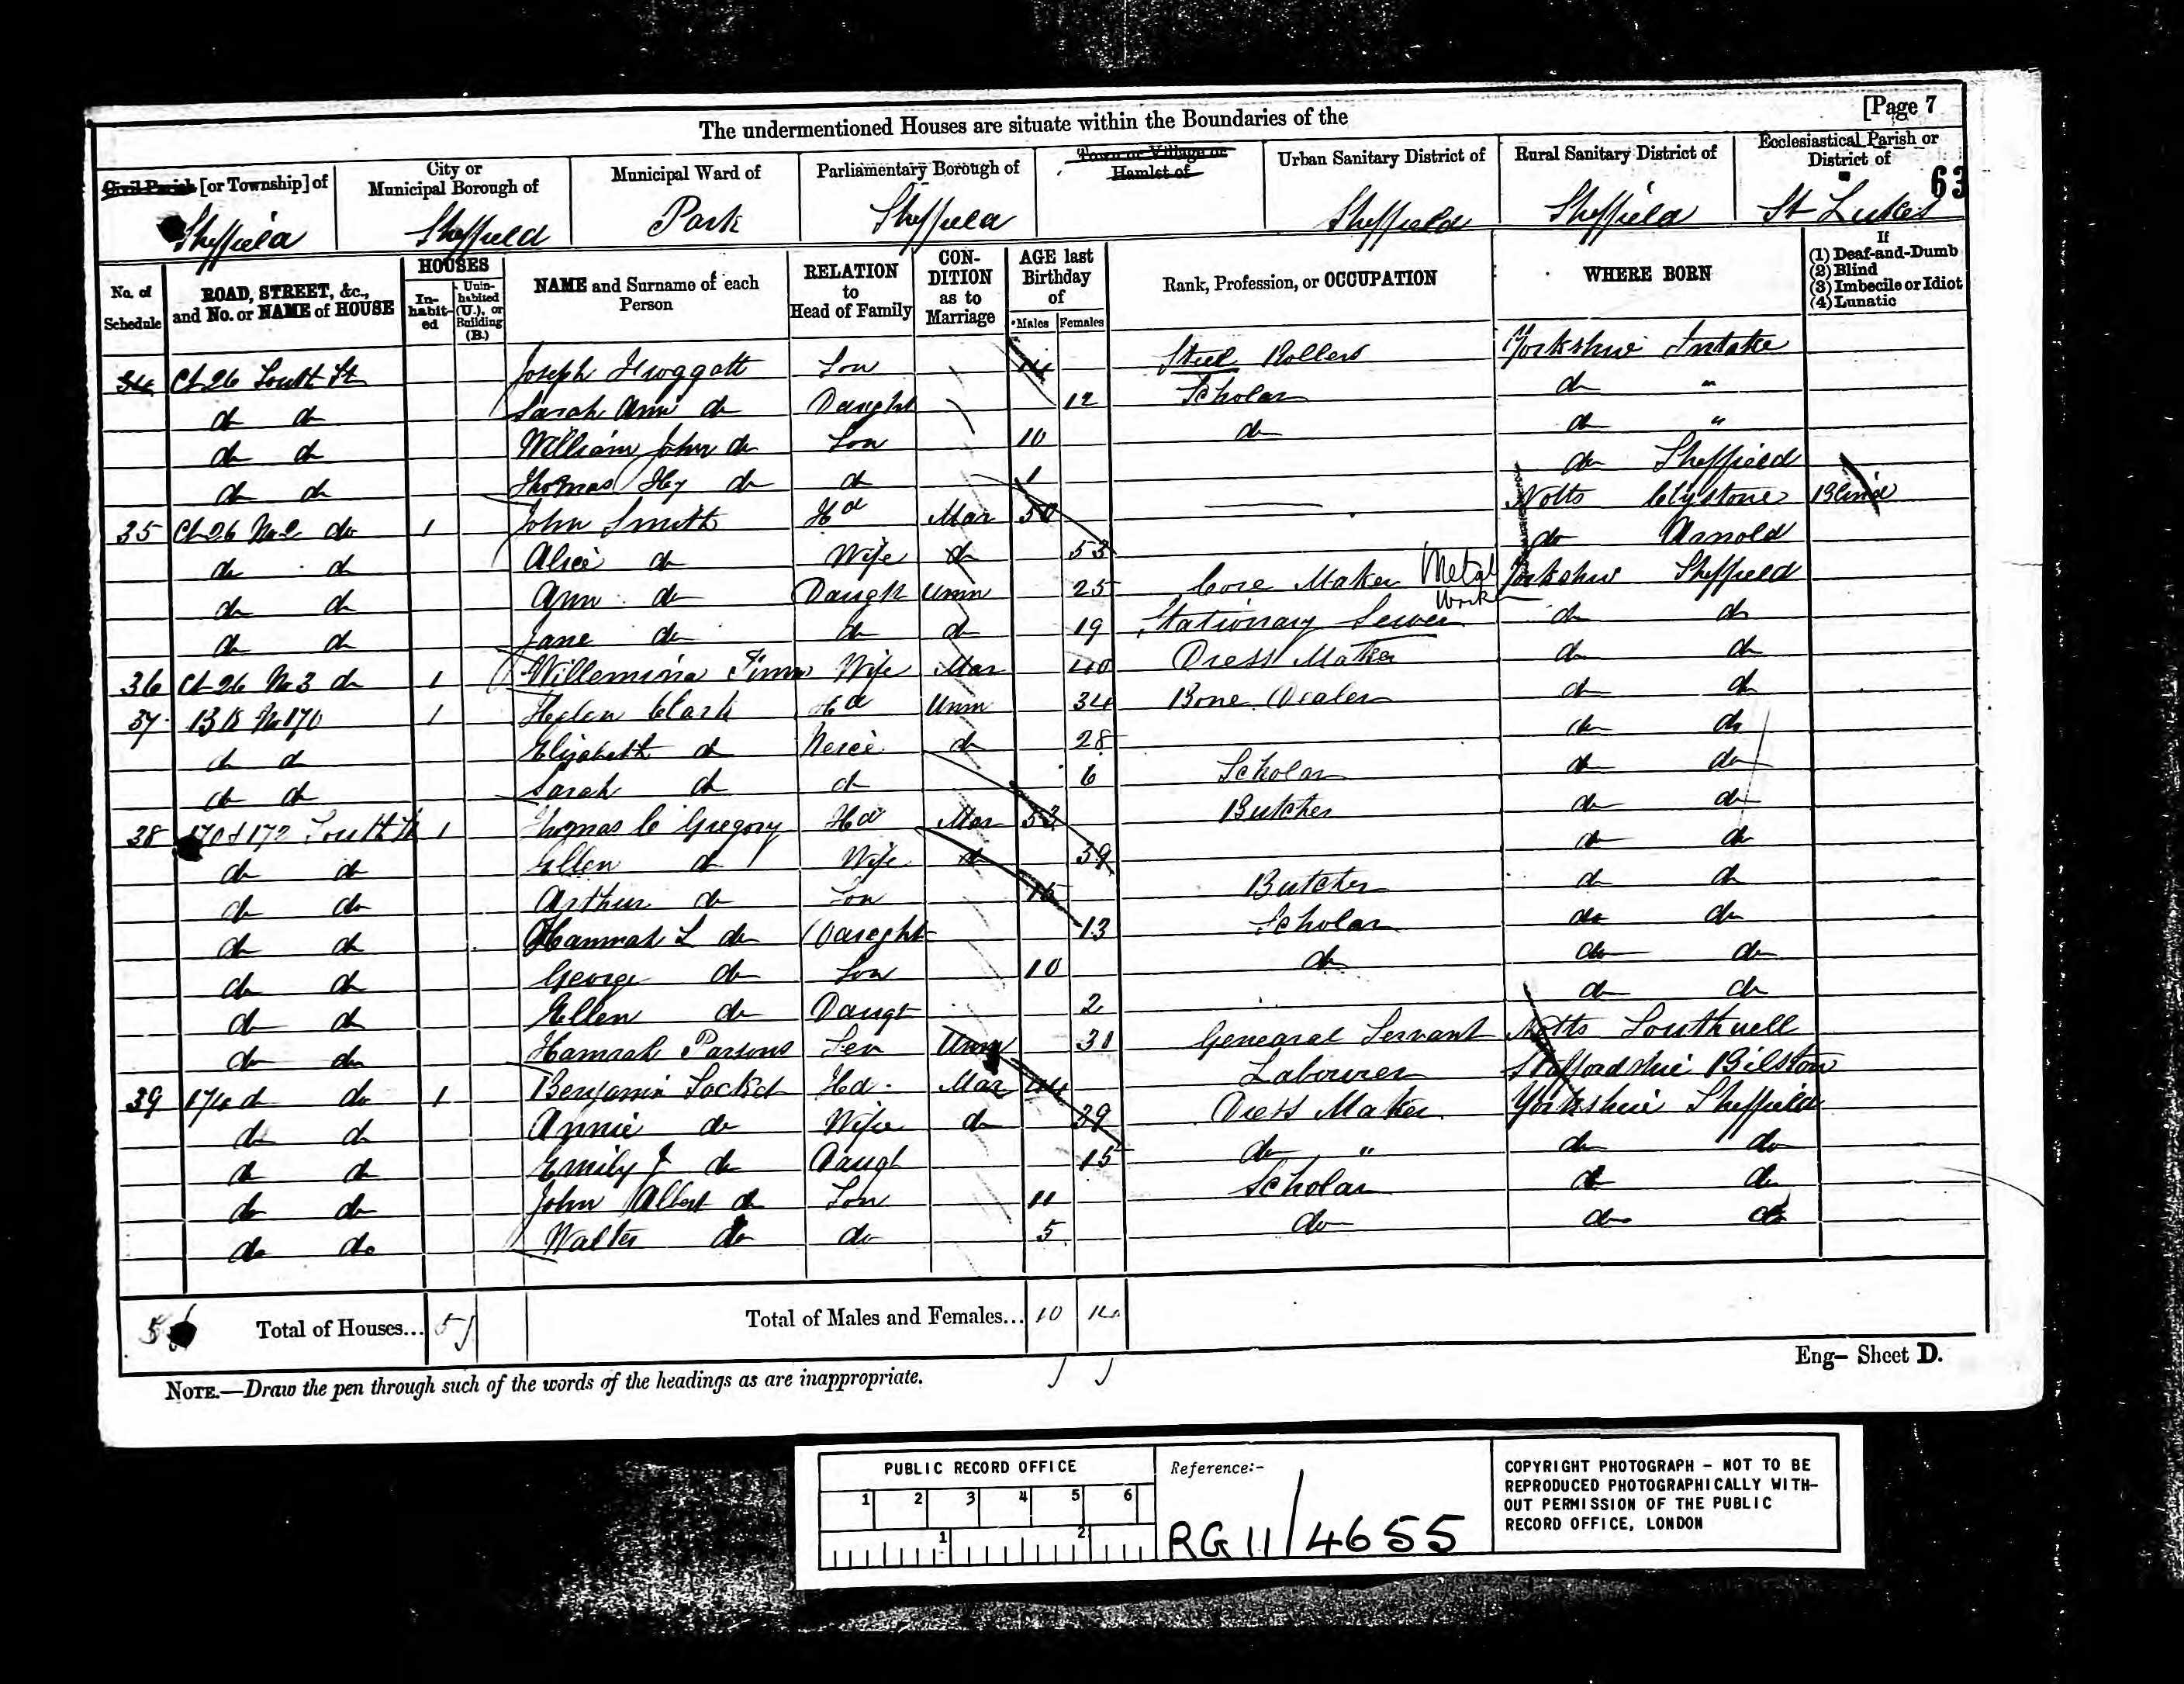 [Page 7
The undermentioned Houses are situate within the Boundaries of the
Civil Parish [or Township] of
City or Municipal Borough of
Municipal Ward of
Parliamentary Borough of
Town or Village or Hamlet of
Urban Sanitary District of
Rural Sanitary District of
Ecclesiastical Parish or District of
63
Sheffield Sheffield Park Sheffield Sheffield Sheffield St Lukes
No. of Schedule
ROAD, STREET, &c., and No. or NAME of HOUSE
HOUSES
In-habit-ed
Unin-habited (U.), or Building (B.)
NAME and Surname of each Person
RELATION to Head of Family
CON-DITION as to Marriage
AGE last Birthday of
Males Females
Rank, Profession, or OCCUPATION
WHERE BORN
If
(1) Deaf-and-Dumb
(2) Blind
(3) Imbecile or Idiot
(4) Lunatic
34 Ct 26 South St Joseph Froggatt Son 14 Steel Rollers Yorkshire Intake
do do Sarah Ann do Daught 12 Scholar do "
do do William John do Son 10 do do "
do do Thomas Hy do do 1 do Sheffield
35 Ct 26 No 2 do 1 John Smith Hd Mar 50 Notts Clystone Blind
do do Alice do Wife do 53 do Arnold
do do Ann do Daught Unm 25 Core Maker Metal Worker Yorkshire Sheffield
do do Jane do do do 19 Stationary Sewer do do
36 Ct 26 No 3 do 1 Willemina Wife Mar 40 Dress Maker do do
37 No 170 1 Clark Hd Unm 34 Bone Dealer do do
do do Elizabeth do Neice do 28 do do
do do Sarah do do 6 Scholar do do
38 170 & 172 South St 1 Thomas C Gregory Hd Mar 53 Butcher do do
do do Ellen do Wife do 39 do do
do do Arthur do Son 15 Butcher do do
do do Hannah L do Daught 13 Scholar do do
do do George do Son 10 do do do
do do Ellen do Daugt 2 do do
do do Hannah Parsons Ser Unm 31 General Servant Notts Southwell
39 174 do 1 Benjamin Hd Mar 44 Labourer Staffordshire Bilston
do do Annie do Wife do 39 Dress Maker Yorkshire Sheffield
do do Emily J do Daugt 15 do " do do
do do John Albert do Son 11 Scholar do do
do do Walter do do 5 do do do
5 Total of Houses... 5 Total of Males and Females... 10 14
Eng- Sheet D.
NOTE.—Draw the pen through such of the words of the headings as are inappropriate.
PUBLIC RECORD OFFICE
1 2 3 4 5 6
1 2
Reference:-
RG 11/4655
COPYRIGHT PHOTOGRAPH - NOT TO BE
REPRODUCED PHOTOGRAPHICALLY WITH-
OUT PERMISSION OF THE PUBLIC
RECORD OFFICE, LONDON